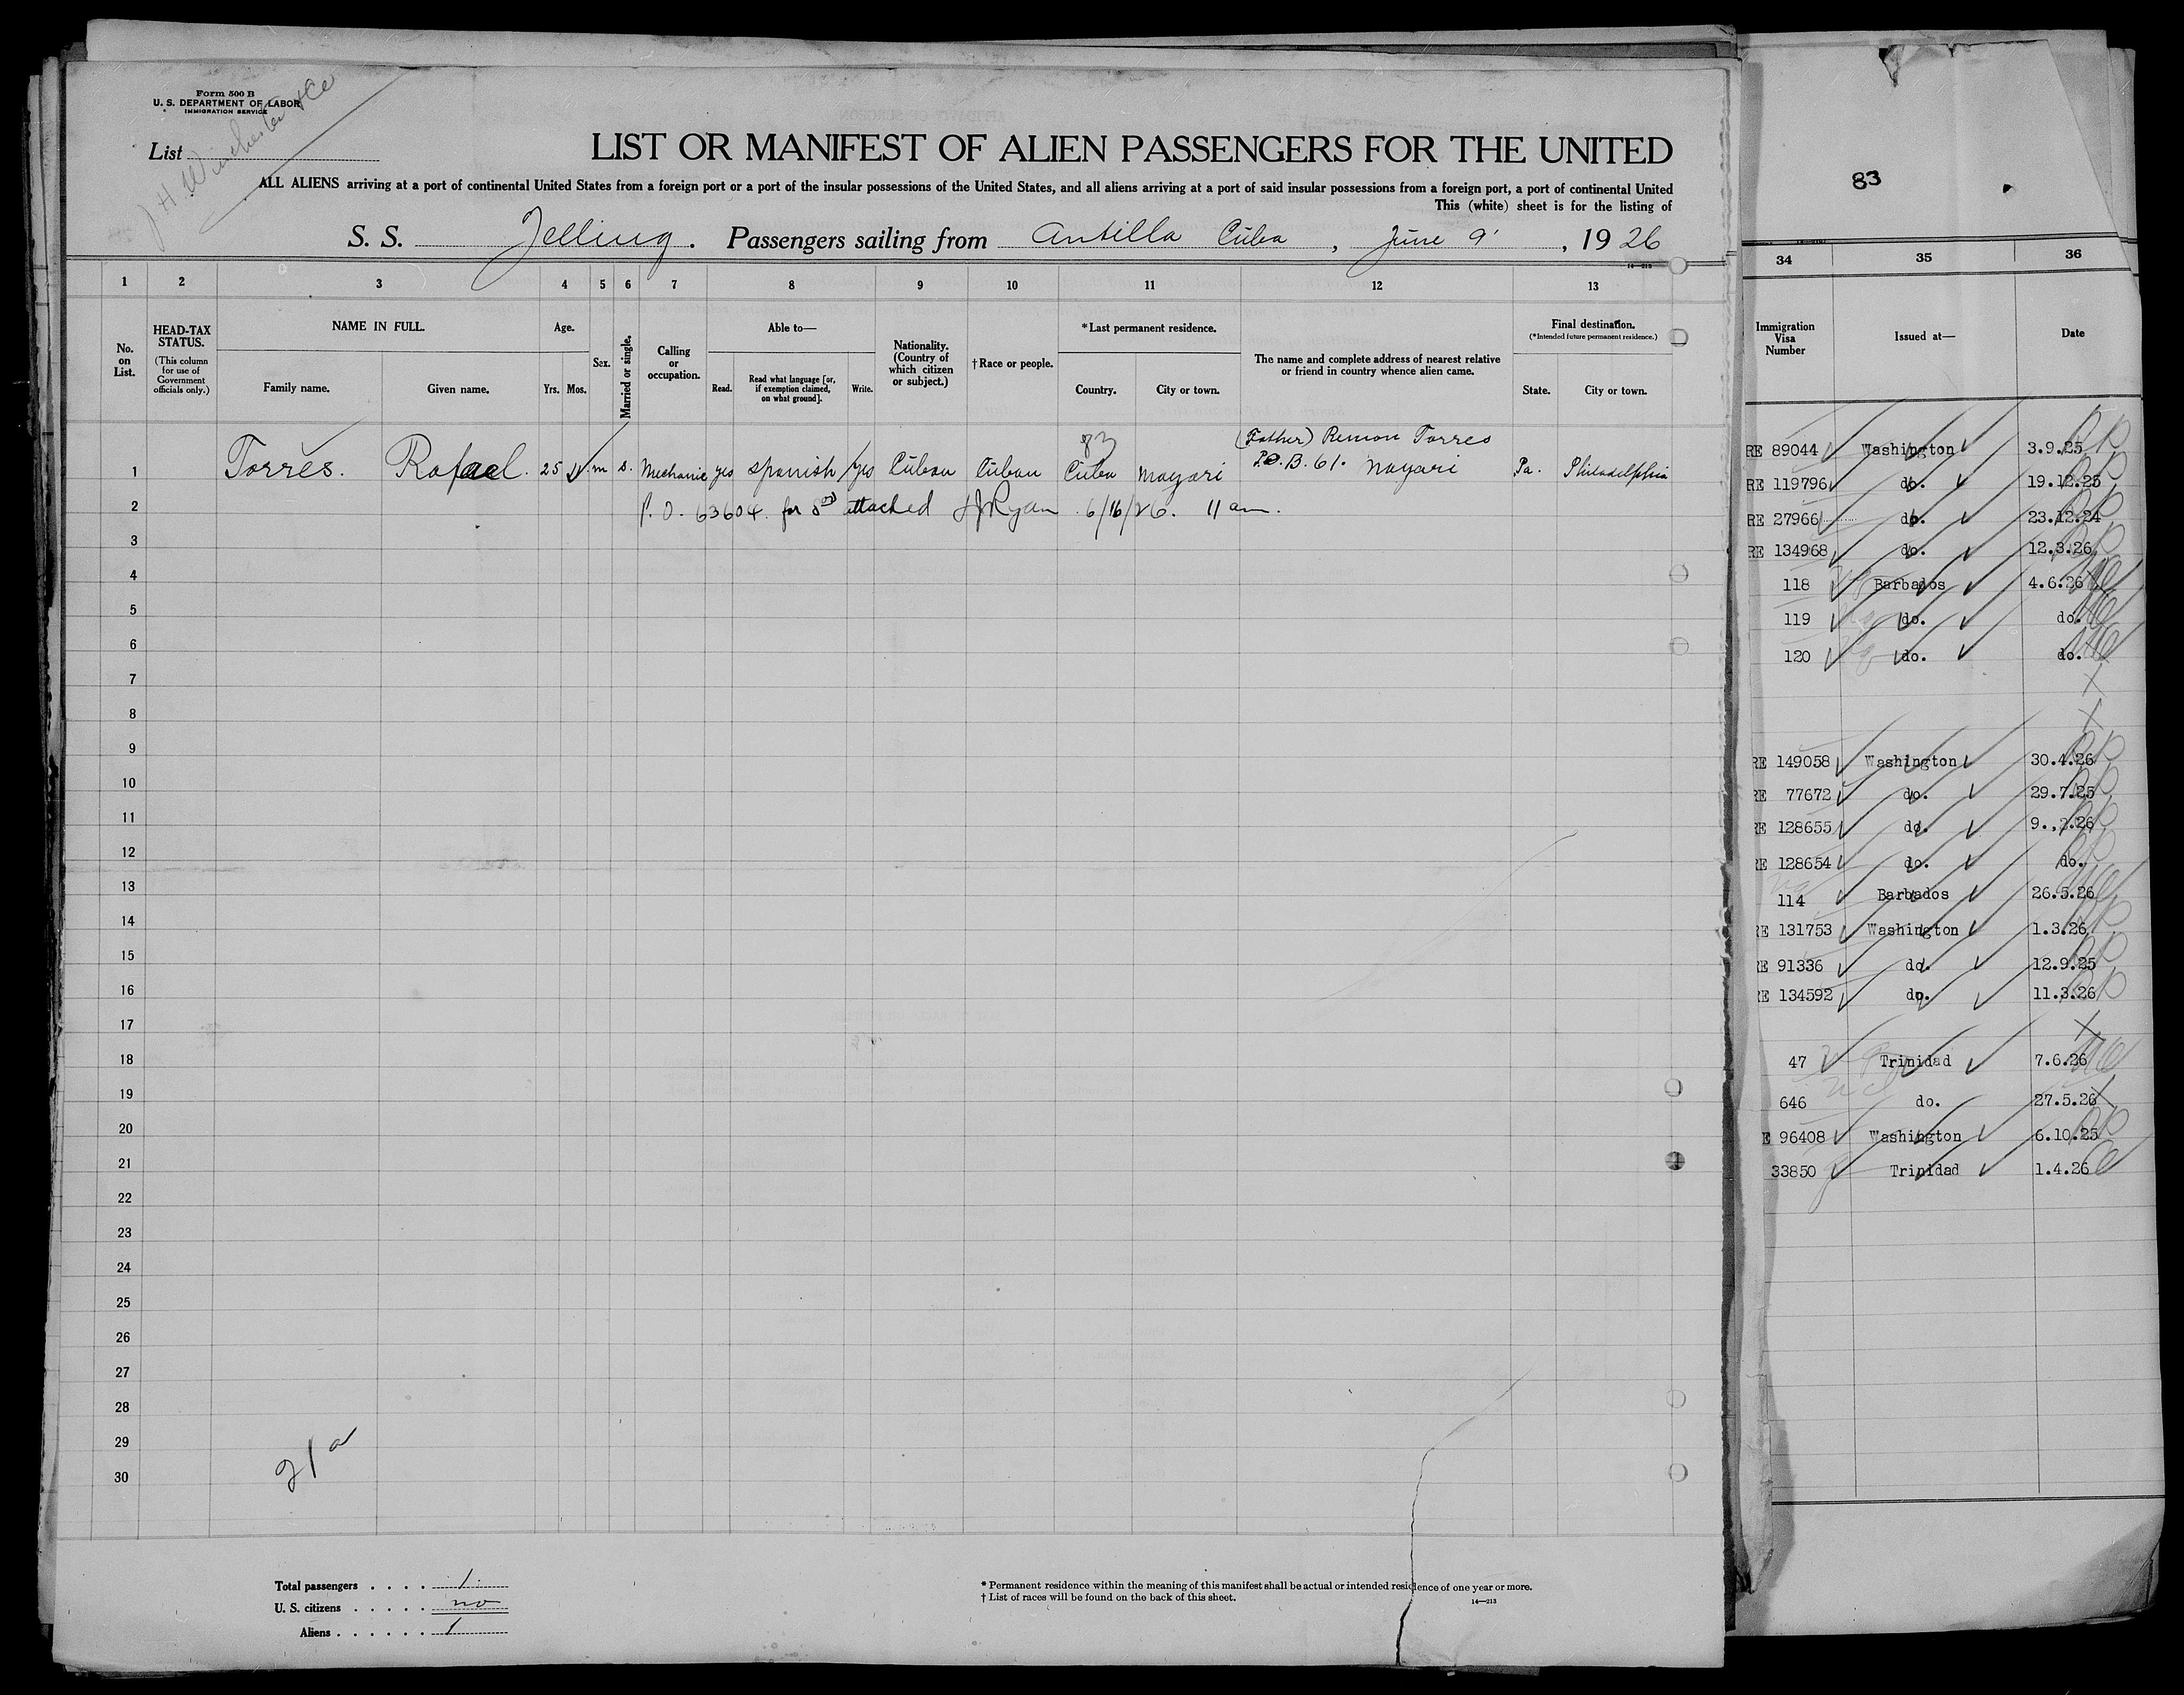 Form 500 B
U. S. DEPARTMENT OF LABOR
IMMIGRATION SERVICE
J H. Winchester & Co
List
LIST OR MANIFEST OF ALIEN PASSENGERS FOR THE UNITED
ALL ALIENS arriving at a port of continental United States from a foreign port or a port of the insular possessions of the United States, and all aliens arriving at a port of said insular possessions from a foreign port, a port of continental United
This (white) sheet is for the listing of
S. S. Jelling. Passengers sailing from Antilla Cuba, June 9, 1926
14—213
1 2 3 4 5 6 7 8 9 10 11 12 13
No. on List.
HEAD-TAX STATUS.
(This column for use of Government officials only.)
NAME IN FULL.
Family name. Given name.
Age.
Yrs. Mos.
Sex.
Married or single.
Calling or occupation.
Able to—
Read. Read what language [or, if exemption claimed, on what ground]. Write.
Nationality. (Country of which citizen or subject.)
†Race or people.
*Last permanent residence.
Country. City or town.
The name and complete address of nearest relative or friend in country whence alien came.
Final destination.
(*Intended future permanent residence.)
State. City or town.
83
(Father) Remon Torres
1 Torres. Rafael. 25 m s. Mechanic yes Spanish yes Cuban Cuban Cuba Mayari P.O.B. 61. Mayari Pa. Philadelphia
2 P. O. 63604 for attached JJRyan 6/16/26. 11 am.
3
4
5
6
7
8
9
10
11
12
13
14
15
16
17
18
19
20
21
22
23
24
25
26
27
28
29
30
21a
Total passengers . . . . 1
U. S. citizens . . . . . no
Aliens . . . . . . 1
* Permanent residence within the meaning of this manifest shall be actual or intended residence of one year or more.
† List of races will be found on the back of this sheet.
14—213
83
34 35 36
Immigration Visa Number
Issued at—
Date
RE 89044 Washington 3.9.25
RE 119796 do. 19.12.25
RE 27966 do. 23.12.24
RE 134968 do. 12.3.26
118 Barbados 4.6.26
119 do. do.
120 do. do.
RE 149058 Washington 30.4.26
RE 77672 do. 29.7.25
RE 128655 do. 9.,2.26
RE 128654 do. do.
114 Barbados 26.5.26
RE 131753 Washington 1.3.26
RE 91336 do. 12.9.25
RE 134592 do. 11.3.26
47 Trinidad 7.6.26
646 do. 27.5.26
E 96408 Washington 6.10.25
33850 Trinidad 1.4.26